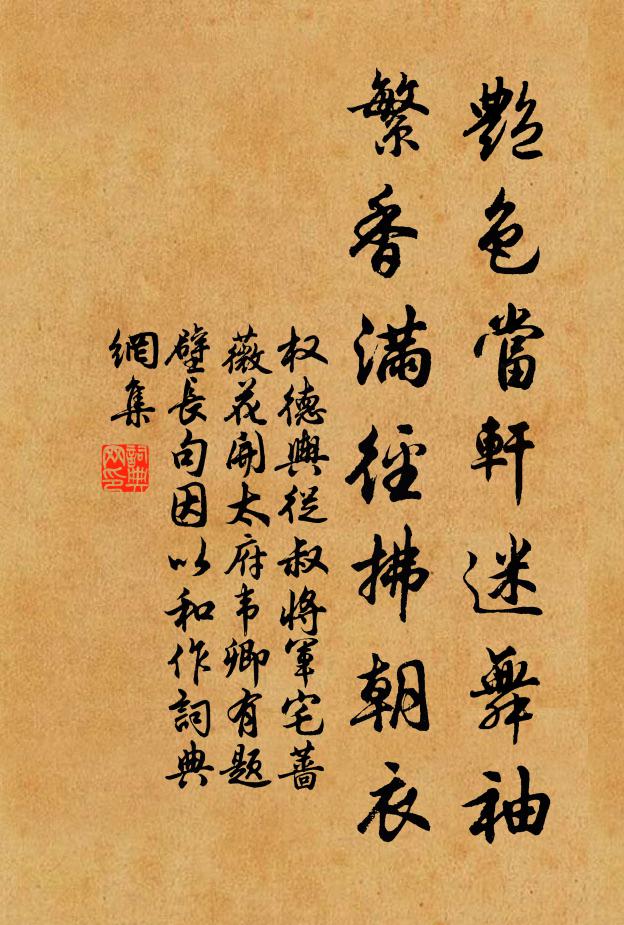 艷色當軒迷舞袖
繁香滿徑拂朝衣
权德輿從叔將軍宅薔
薇花開太府韦卿有題
壁長句因以和作詞典
網集
詞典
网印